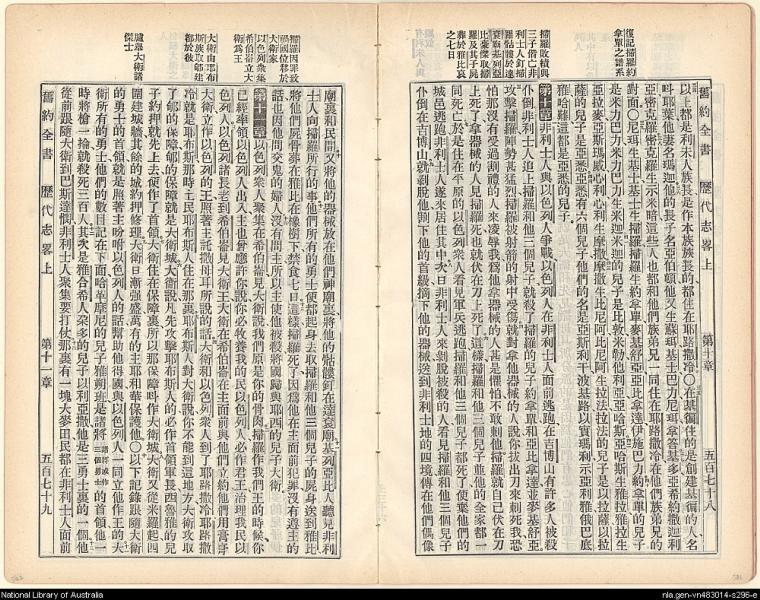 舊約全書 歷代志畧上 第十章 五百七十八
復記掃羅約
拿單之譜系
掃羅敗績與
三子偕亡非
利士人釘掃
羅骷髏於達
袞廟基列亞
比羣傑取掃
羅及其子屍
葬於雅比哀
之七日
以上都是利未人族長是作本族族長的都住在耶路撒冷〇在基徧住的是創建基徧的人名
叫耶葉他妻名瑪迦他的長子名亞伯頓他又生蘇珥基士巴力尼珥拿答基多亞希約撒迦利
亞密克羅密克羅生示米暗這些人也都和他們族弟兄一同住在耶路撒冷在他們族弟兄的
對面〇尼珥生基士基士生掃羅掃羅生約拿單麥基舒亞亞比拿達伊施巴力約拿單的兒子
是米力巴力米力巴力生米迦米迦的兒子是比敦米勒他利亞亞哈斯亞哈斯生雅拉雅拉生
亞拉麥亞斯瑪威心利心利生摩撒摩撒生比尼阿比尼阿生拉法拉法的兒子是以拉薩以拉
薩的兒子是亞悉亞悉有六個兒子他們的名是亞斯利干波基路以實瑪利示亞利雅俄巴底
雅哈難這都是亞悉的兒子
第十章非利士人與以色列人爭戰以色列人在非利士人面前逃跑在吉博山有許多人被殺
仆倒非利士人追上掃羅和他三個兒子就殺了掃羅的兒子約拿單和亞比拿達並麥基舒亞
攻擊掃羅陣勢甚猛烈掃羅被射箭的射中受傷就對拿他器械的人說你拔出刀來刺死我恐
怕那沒有受過割禮的人來凌辱我爲他拿器械的人甚是懼怕不敢刺他掃羅就自己伏在刀
上死了拿器械的人見掃羅死也就伏在刀上死了這樣掃羅和他三個兒子並他的全家都一
同死亡於是住在平原的以色列衆人看見軍兵逃跑掃羅和他三個兒子都死了便棄他們的
城邑逃跑非利士人遂來居住其中次日非利士人來剝脫被殺的人看見掃羅和他三個兒子
仆倒在吉博山就剝脫他割下他的首級摘下他的器械送到非利士地的四境傳在他們偶像
掃羅因罪致
禍國位移於
大衛家
以色列衆集
希伯崙立大
衛爲王
大衛由耶布
斯族取郇建
都於彼
臚舉大衛諸
傑士
廟裏和民間又將他的器械放在他們神廟裏將他的骷髏釘在達袞廟基列亞比人聽見非利
士人向掃羅所行的事他們所有的勇士便都起身去取掃羅和他三個兒子的屍身送到雅比
將他們屍骨葬在雅比在橡樹下禁食七日這樣掃羅死了因爲他在主面前犯罪沒有遵主的
話也因他問交鬼的婦人沒有問主所以主使他被殺將國歸與耶西的兒子大衛
第十一章以色列衆人聚集在希伯崙見大衛說我們原是你的骨肉掃羅作我們王的時候你
已經率領以色列人出入主也曾應許你說你必牧養我的民以色列人必作君王治理我民以
色列人以色列諸長老到希伯崙見大衛王大衛在希伯崙在主面前與他們立約他們用膏膏
大衛立作以色列的王照著主託撒母耳所說的話大衛和以色列衆人到了耶路撒冷耶路撒
冷就是耶布斯那時主民耶布斯人住在那裏耶布斯人對大衛說你不能到這地方大衛攻取
了郇的保障郇的保障就是大衛城大衛說凡先攻擊耶布斯人的必作首領軍長西魯雅的兒
子約押就先上去便作了首領大衛住在保障裏所以那保障叫作大衛城大衛又從米羅起四
圍建城牆其餘的城約押修理大衛日漸強盛萬有的主和華保護他〇以下記錄跟隨大衛
的勇士的首領就是照著主吩咐以色列人的話幫助他得國與以色列人一同立他作王的大
衛所有的勇士他們的數目記在下面哈革摩尼的兒子雅朔班是諸將的首領他一
時將槍一掄就殺死三百人其次是雅合希人朵多的兒子以利亞撒他是三勇士裏的一個他
從前跟隨大衛到巴斯達憫非利士人聚集要打仗那裏有一塊大麥田民都在非利士人面前
舊約全書 歷代志畧上 第十一章 五百七十九
National Library of Australia
nla.gen-vn483014-s296-e